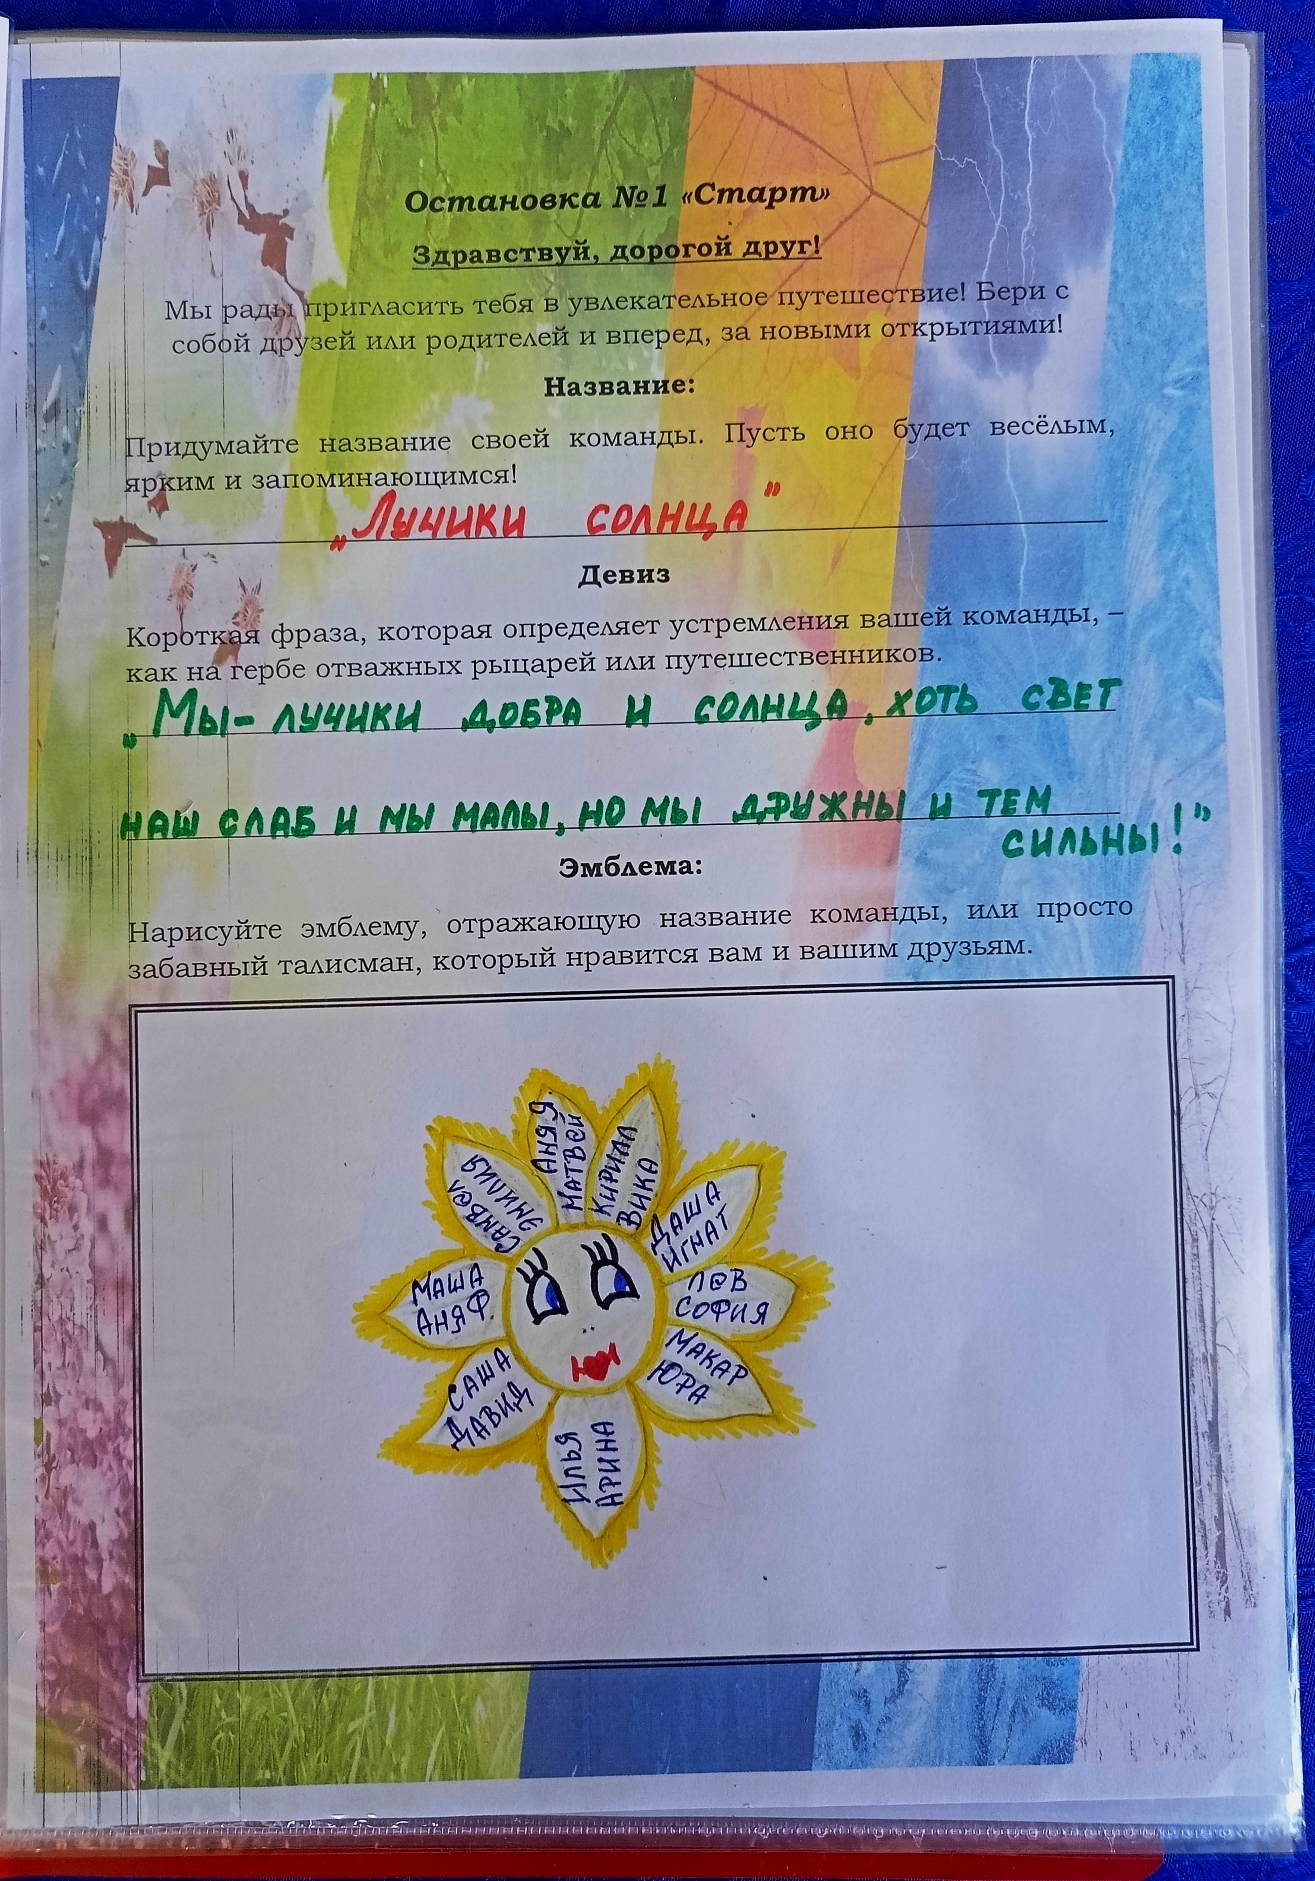 Остановка №1 «Старт»
Здравствуй, дорогой друг!
Мы рады пригласить тебя в увлекательное путешествие! Бери с
собой друзей или родителей и вперед, за новыми открытиями!
Название:
Придумайте название своей команды. Пусть оно будет весёлым,
ярким и запоминающимся!
„Лучики солнца"
Девиз
Короткая фраза, которая определяет устремления вашей команды, –
как на гербе отважных рыцарей или путешественников.
„Мы - лучики добра и солнца. Хоть свет
наш слаб и мы малы, но мы дружны и тем
сильны!"
Эмблема:
Нарисуйте эмблему, отражающую название команды, или просто
забавный талисман, который нравится вам и вашим друзьям.
Аня Я.
Матвей
Кирилл
Вика
Даша
Игнат
Лев
София
Макар
Юра
Илья
Арина
Саша
Давид
Маша
Аня Ф.
Самвел
Эмилия